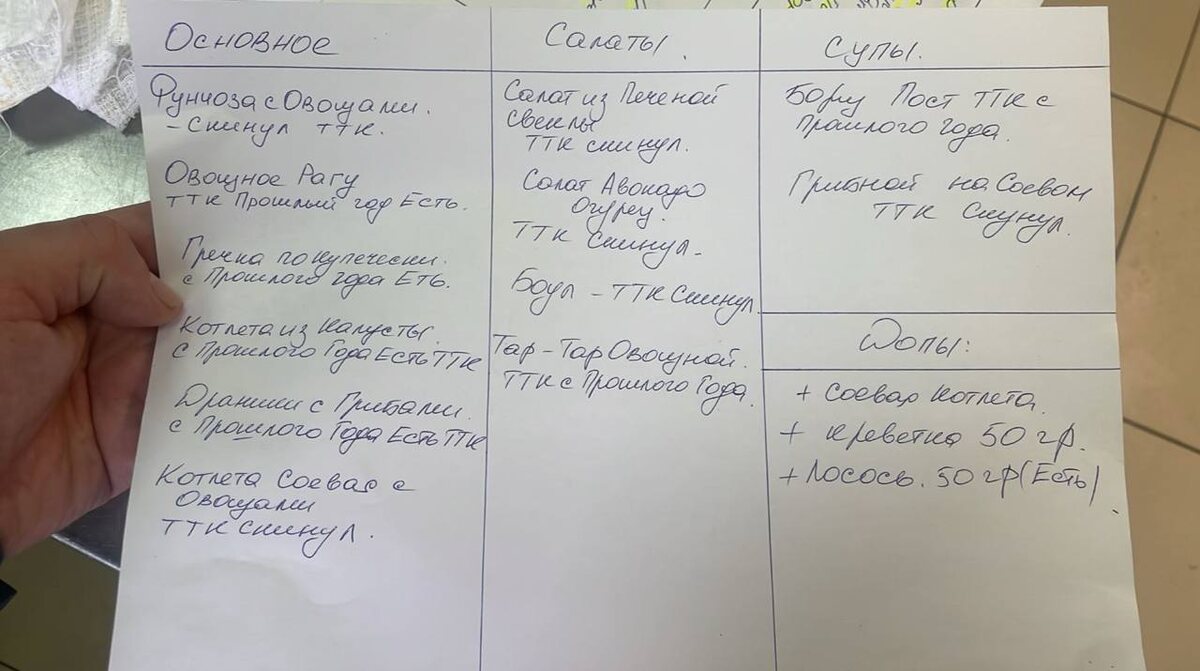 Основное
Фунчоза с Овощами.
- Скинул ТТК.
Овощное Рагу
ТТК Прошлый год Есть.
Гречка по купечески.
с Прошлого года Еть.
Котлета из Капусты.
с Прошлого Года Есть ТТК
Драники с Грибами.
с Прошлого Года Есть ТТК
Котлета Соевая с
Овощами
ТТК Скинул.
Салаты.
Салат из Печеной
свеклы
ТТК скинул.
Солат Авокадо
Огурец.
ТТК Скинул.
Боул - ТТК Скинул
Тар-Тар Овощной.
ТТК с Прошлого Года.
Супы.
Борщ Пост ТТК с
Прошлого Года.
Грибной на Соевом
ТТК Скинул.
Допы:
+ Соевая Котлета.
+ Креветка 50 гр.
+ Лосось. 50 гр (Есть)